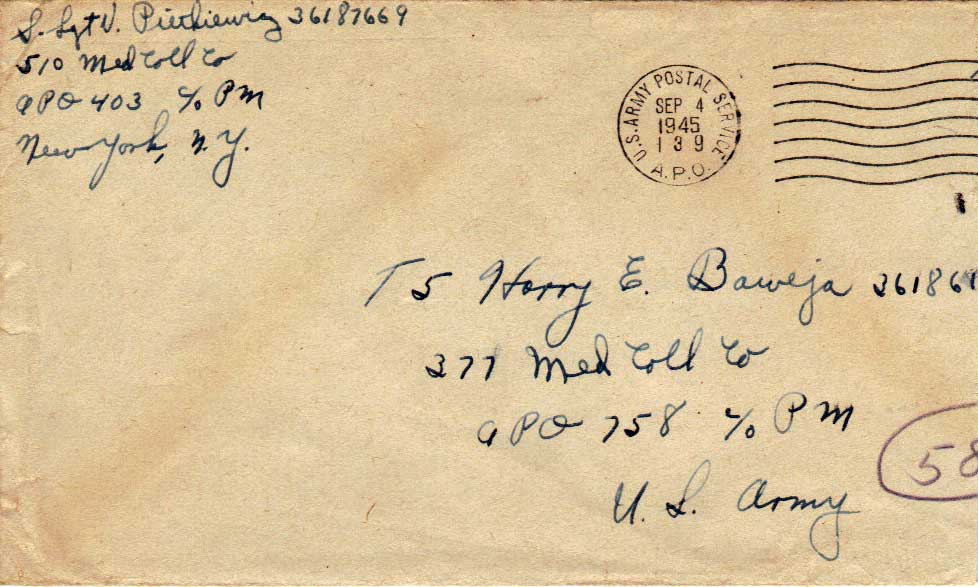 S. Sgt V. Pietkiewicz 36187669
510 Med Coll Co
APO 403 c/o PM
New York, N.Y.
U.S. ARMY POSTAL SERVICE
SEP 4
1945
1 3 9
A.P.O.
T5 Harry E. Baweja 36186
377 Med Coll Co
APO 758 c/o PM
58
U.S. Army